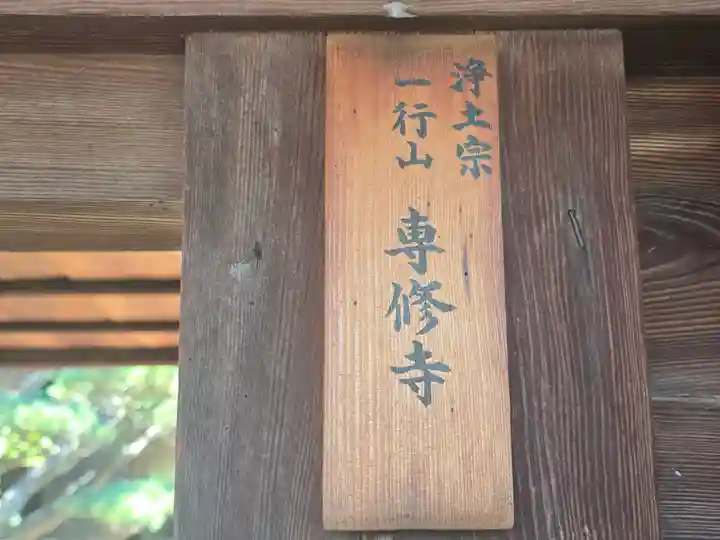 浄土宗
一行山 専修寺